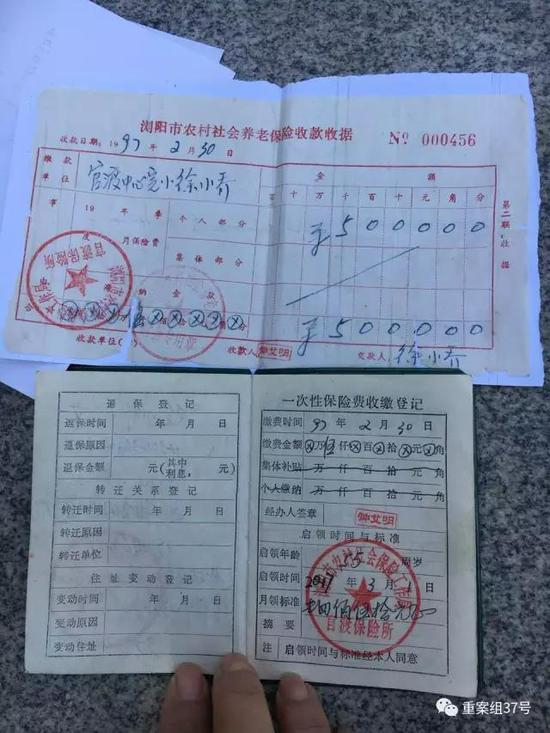 浏阳市农村社会养老保险收款收据
№ 000456
收款日期：1997年2月30日
缴款单位 官渡中心完小徐小乔
金额
百十万千百十元角分
事
19 年 季 个人部分
￥500000
度 月保险费 集体部分
￥500000
收款单位
收款人 仲艾明 交款人 徐小乔
第二联：收据
官渡保险所
退保登记
退保时间 年 月 日
退保原因
退保金额 元（其中利息， 元）
转迁关系登记
转迁时间 年 月 日
转迁原因
转迁单位
住址变动登记
变动时间 年 月 日
变动原因
变动住址
一次性保险费收缴登记
缴费时间 97年2月30日
缴费金额 ⊗万伍仟⊗百⊗拾⊗元⊗角
集体补贴 万仟百拾元角
个人缴纳 万仟百拾元角
经办人签章 仲艾明
启领时间与标准
启领年龄 55周岁
启领时间 年3月 日
月领标准
摘要
官渡保险所
注 启领时间与标准经本人同意
重案组37号